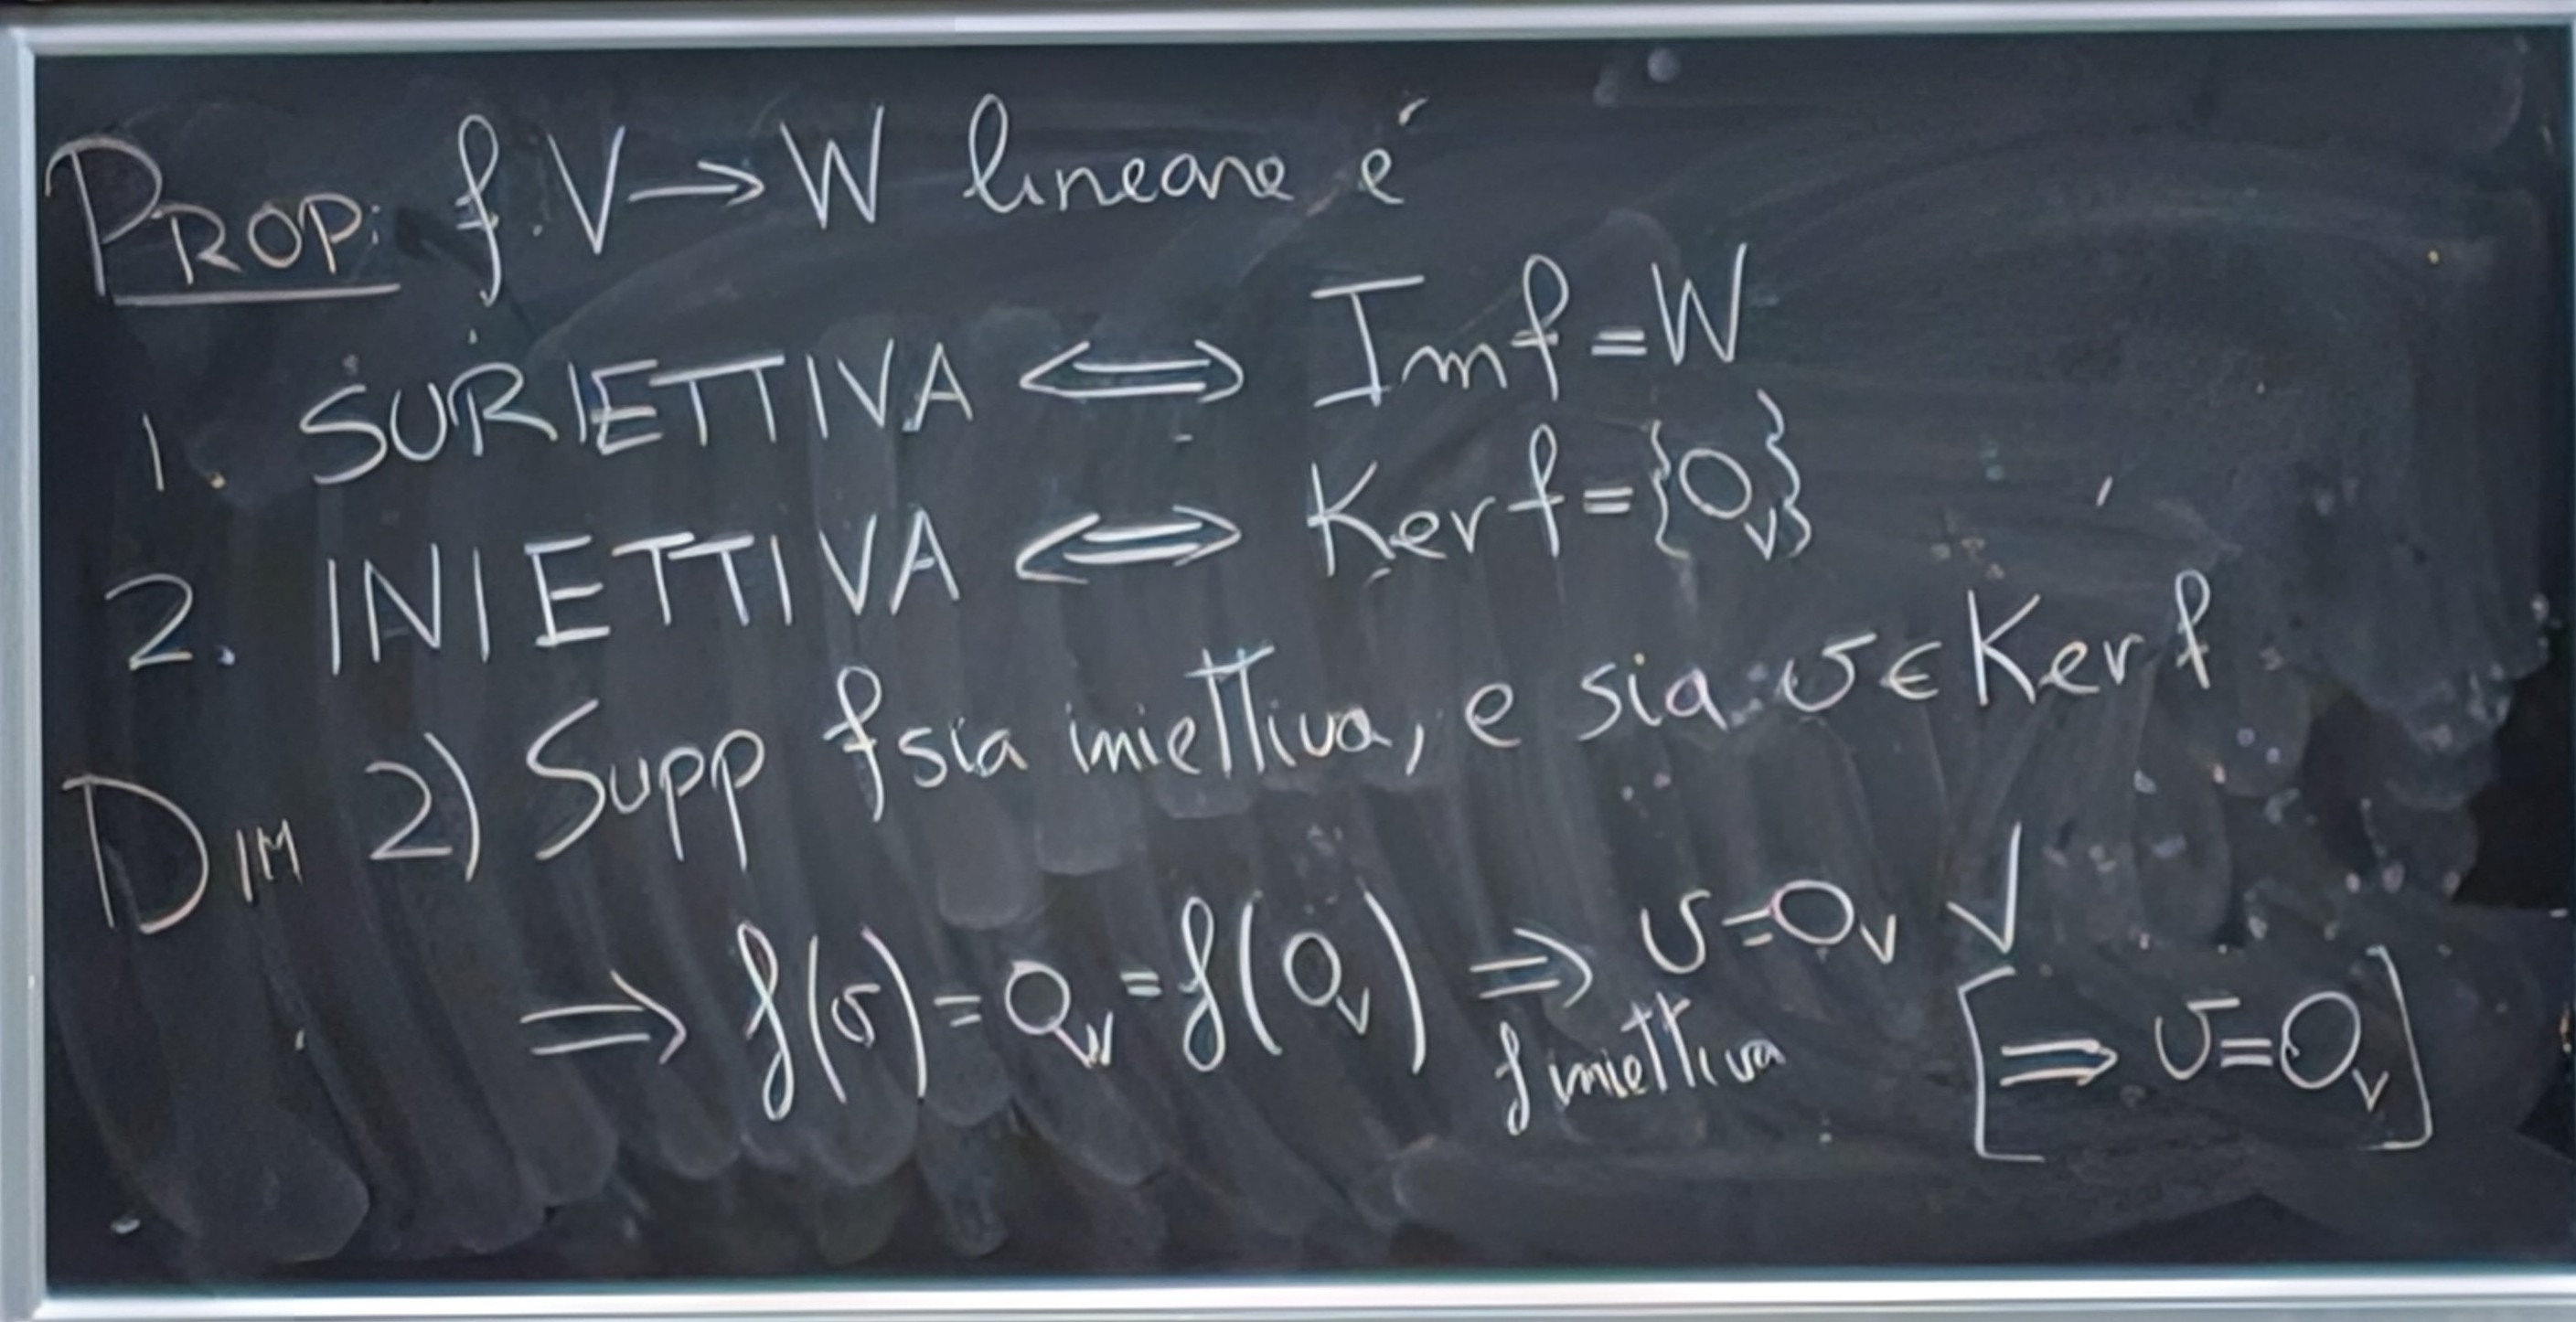 PROP: f: V → W lineare è
1. SURIETTIVA ⟺ Im f = W
2. INIETTIVA ⟺ Ker f = {0_V}
DIM 2) Supp f sia iniettiva, e sia v ∈ Ker f
⟹ f(v) = 0_W = f(0_V) ⟹ v = 0_V √
f iniettiva [⟹ v = 0_V]